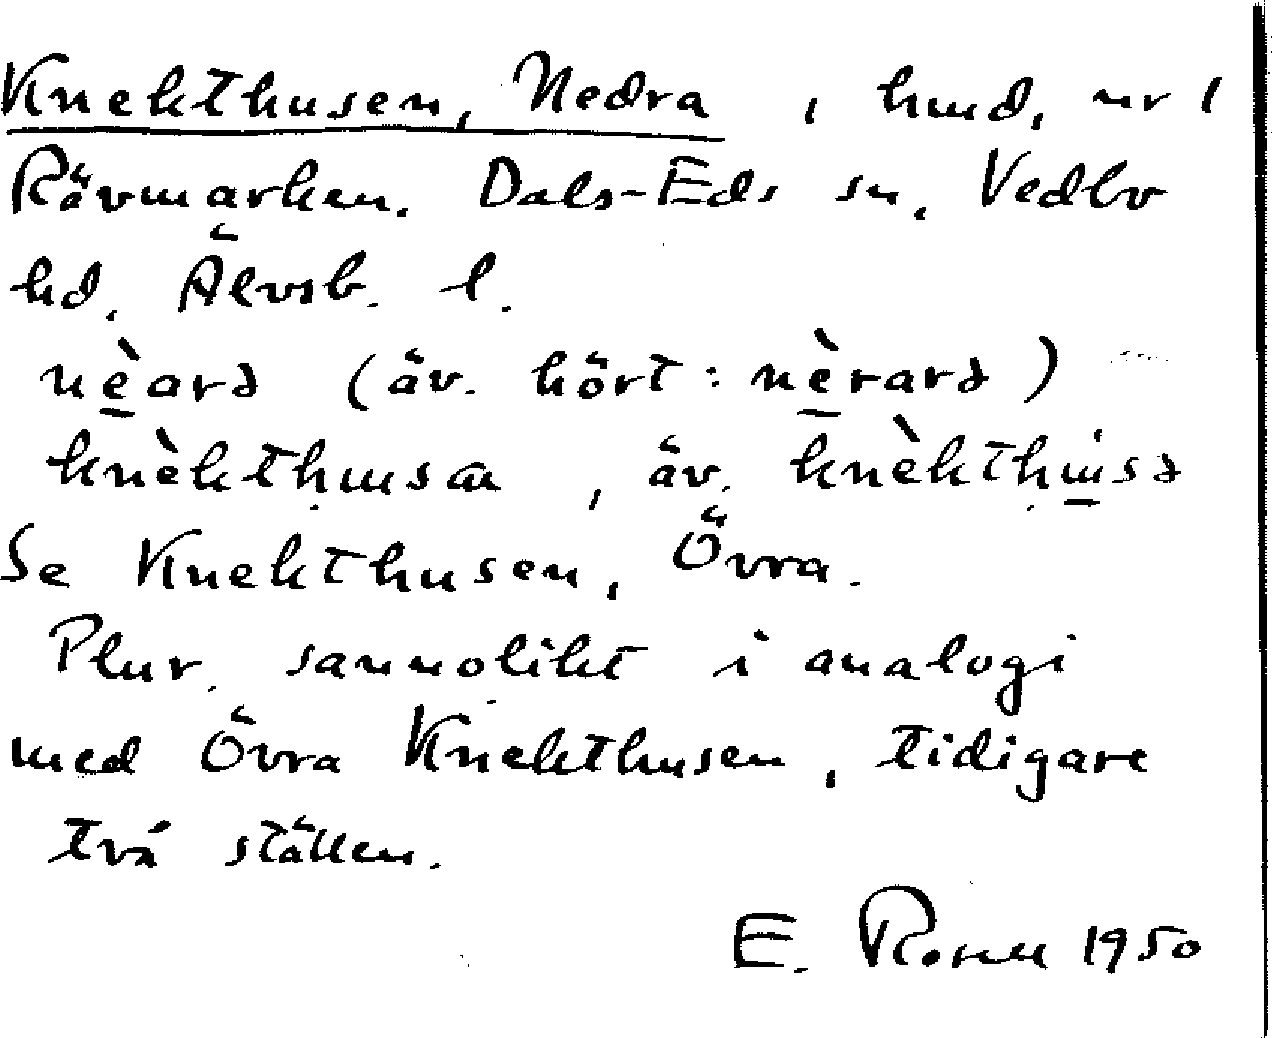 Knekthusen, Nedra, hmd. nr 1
Rävmarken. Dals-Eds sn. Vedbo
hd. Älvsb. l.
nè̱arə (äv. hört: nè̱rarə)
knèktḥusa, äv. knèktḥu̱sə
Se Knekthusen, Övra.
Plur. sannolikt i analogi
med Övra Knekthusen, tidigare
två ställen.
E. Rosell 1950